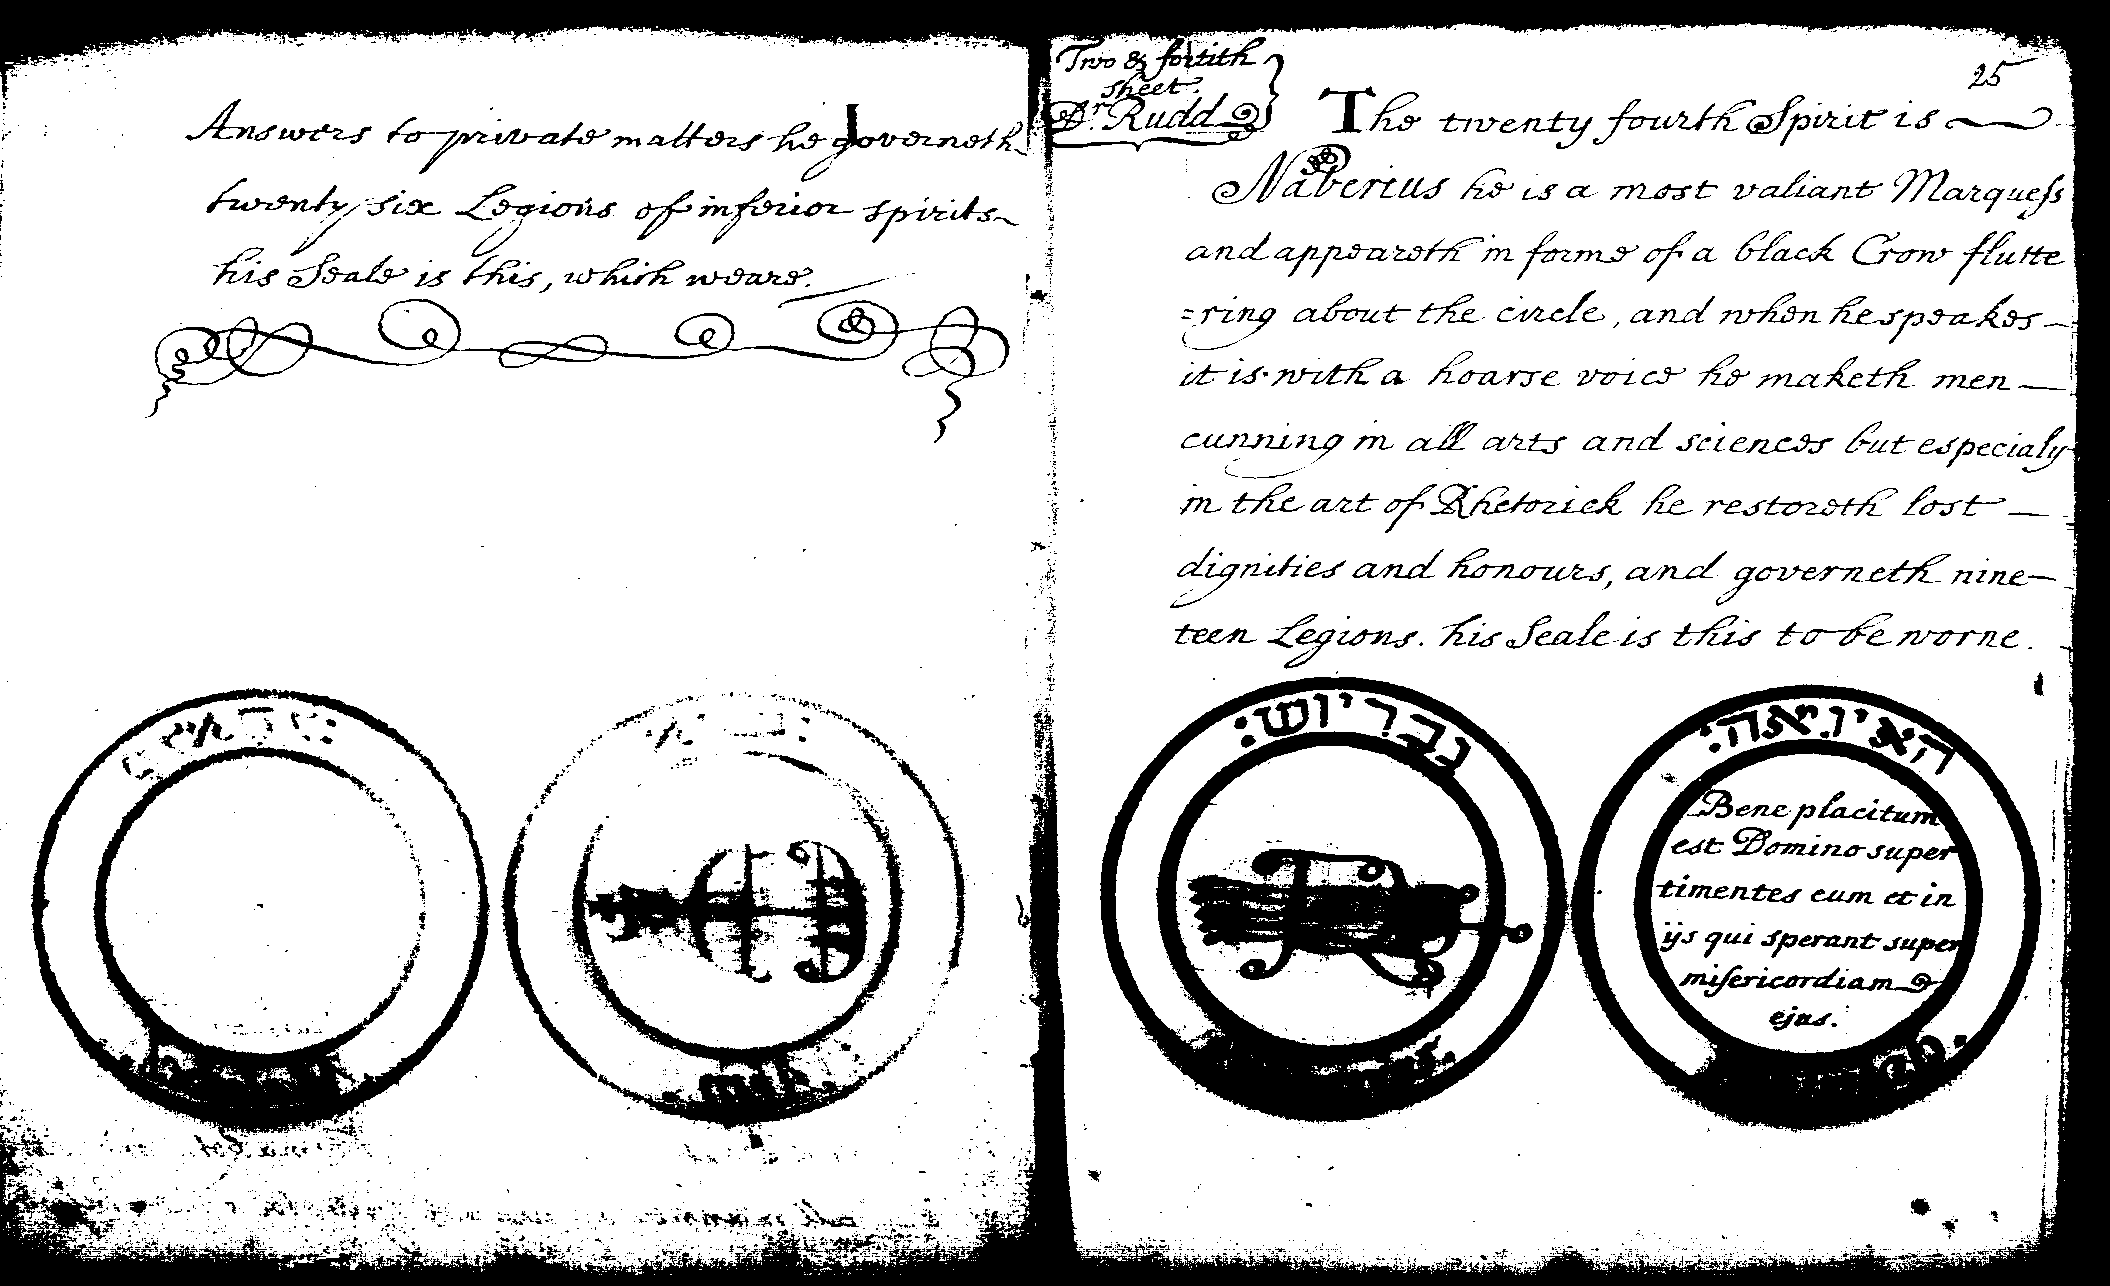 Answers to private matters he governeth
twenty six Legions of inferior spirits
his Seale is this, which weare.
Two & fortith
sheet.
Dr. Rudd
25
The twenty fourth Spirit is
Naberius he is a most valiant Marquess
and appeareth in forme of a black Crow flutte
=ring about the circle, and when he speakes
it is with a hoarse voice he maketh men
cunning in all arts and sciences but especialy
in the art of Rhetorick he restoreth lost
dignities and honours, and governeth nine
teen Legions. his Seale is this to be worne.
נבריוש:
האיואה:
Bene placitum
est Domino super
timentes eum et in
ijs qui sperant super
misericordiam
ejus.